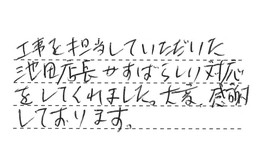 工事を担当していただいた
池田店長がすばらしい対応
をしてくれました。大変、感謝
しております。